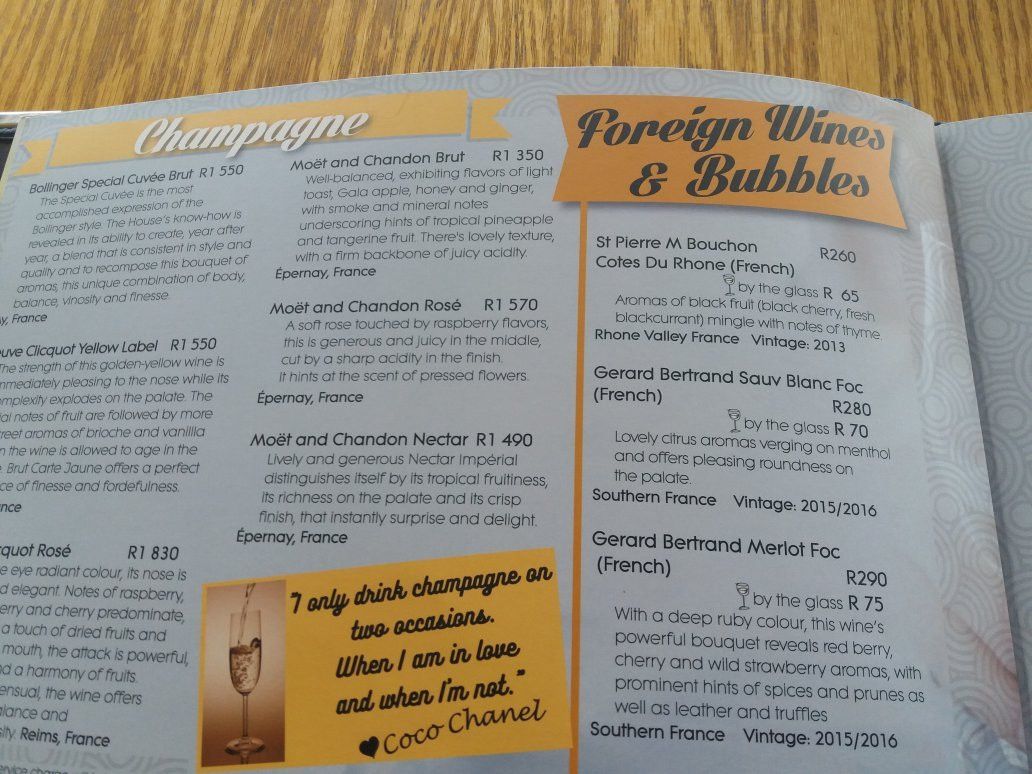 Champagne
Bollinger Special Cuvée Brut R1 550
The Special Cuvée is the most
accomplished expression of the
Bollinger style. The House's know-how is
revealed in its ability to create, year after
year, a blend that is consistent in style and
quality and to recompose this bouquet of
aromas, this unique combination of body,
balance, vinosity and finesse.
France
Clicquot Yellow Label R1 550
The strength of this golden-yellow wine is
immediately pleasing to the nose while its
complexity explodes on the palate. The
notes of fruit are followed by more
aromas of brioche and vanillla
the wine is allowed to age in the
Brut Carte Jaune offers a perfect
of finesse and fordefulness.
Rosé R1 830
eye radiant colour, its nose is
elegant. Notes of raspberry,
and cherry predominate,
a touch of dried fruits and
mouth, the attack is powerful,
a harmony of fruits.
the wine offers
and
Reims, France
Moët and Chandon Brut R1 350
Well-balanced, exhibiting flavors of light
toast, Gala apple, honey and ginger,
with smoke and mineral notes
underscoring hints of tropical pineapple
and tangerine fruit. There's lovely texture,
with a firm backbone of juicy acidity.
Épernay, France
Moët and Chandon Rosé R1 570
A soft rose touched by raspberry flavors,
this is generous and juicy in the middle,
cut by a sharp acidity in the finish.
It hints at the scent of pressed flowers.
Épernay, France
Moët and Chandon Nectar R1 490
Lively and generous Nectar Impérial
distinguishes itself by its tropical fruitiness,
its richness on the palate and its crisp
finish, that instantly surprise and delight.
Épernay, France
"I only drink champagne on
two occasions.
When I am in love
and when I'm not."
Coco Chanel
Foreign Wines
& Bubbles
St Pierre M Bouchon R260
Cotes Du Rhone (French)
by the glass R 65
Aromas of black fruit (black cherry, fresh
blackcurrant) mingle with notes of thyme
Rhone Valley France Vintage: 2013
Gerard Bertrand Sauv Blanc Foc
(French) R280
by the glass R 70
Lovely citrus aromas verging on menthol
and offers pleasing roundness on
the palate.
Southern France Vintage: 2015/2016
Gerard Bertrand Merlot Foc
(French) R290
by the glass R 75
With a deep ruby colour, this wine's
powerful bouquet reveals red berry,
cherry and wild strawberry aromas, with
prominent hints of spices and prunes as
well as leather and truffles
Southern France Vintage: 2015/2016